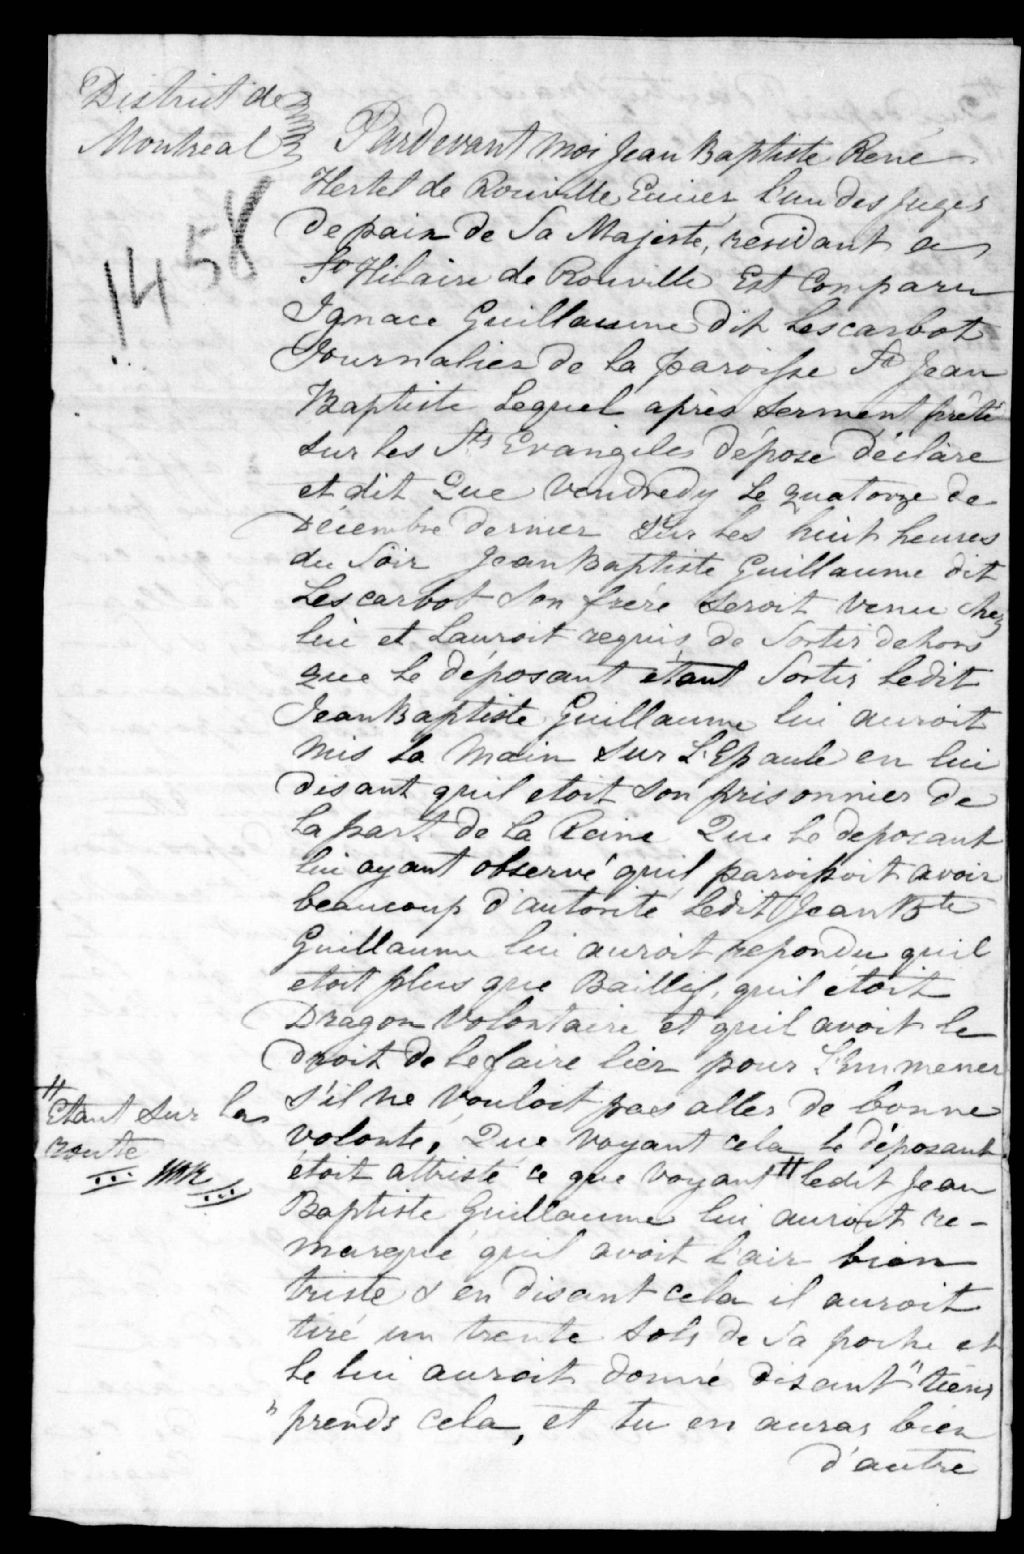 District de
Montréal
1458
Pardevant moi Jean Baptiste René
Hertel de Rouville Ecuier, l'un des juges
de paix de Sa Majesté, residant a
St Hilaire de Rouville Est Comparu
Ignace Guillaume dit Lescarbot
Journalier de la paroisse St Jean
Baptiste Lequel après serment prêté
sur les Sts Evangiles dépose déclare
et dit Que Vendredy le quatorze de
Décembre dernier sur les huit heures
du Soir Jean Baptiste Guillaume dit
Lescarbot son frère seroit venu chez
lui et Lauroit requis de Sortir dehors
que le déposant étant Sortis ledit
Jean Baptiste Guillaume lui auroit
mis la main sur L'Epaule en lui
disant quil etoit son prisonnier de
la part de la Reine Que le deposant
lui ayant observé quil paroissoit avoir
beaucoup d'autorité ledit Jean Bte
Guillaume lui auroit repondu quil
etoit plus que Baillif, quil étoit
Dragon Volontaire et quil avoit le
Droit de le faire lier pour L'Emmener
s'il ne Vouloit pas aller de bonne
volonté, Que voyant cela le déposant
étoit attristé ce que voyant " ledit Jean
" Etant sur la
route
Baptiste Guillaume lui auroit re-
marqué quil avoit l'air bien
triste & en disant cela il auroit
tiré un trente sols de Sa poche et
le lui auroit donné disant "tiens
" prends cela, et tu en auras bien
d'autre